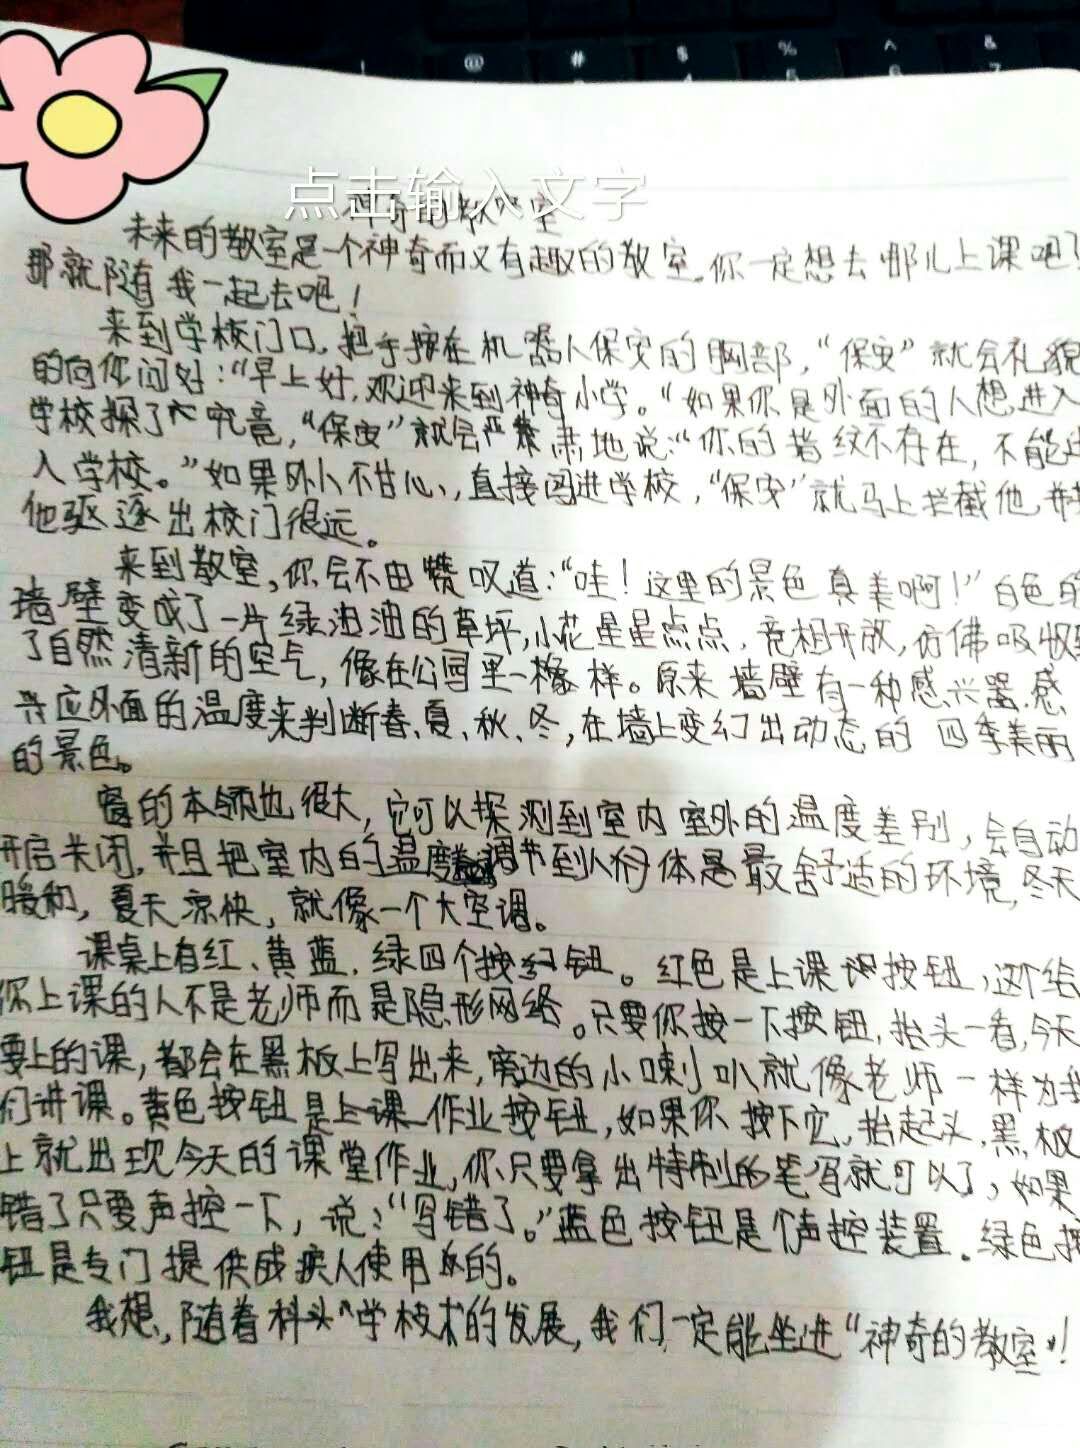 @ # $ % ^ &
点击输入文字
神奇的教室
未来的教室是一个神奇而又有趣的教室。你一定想去哪儿上课吧？
那就随我一起去吧！
来到学校门口，把手按在机器人保安的胸部，“保安”就会礼貌
的向你问好：“早上好，欢迎来到神奇小学。“如果你是外面的人想进入
学校探了究竟，“保安”就会严肃地说：“你的指纹不存在，不能进
入学校。”如果外人不甘心，直接闯进学校，“保安”就马上拦截他，并把
他驱逐出校门很远。
来到教室，你会不由赞叹道：“哇！这里的景色真美啊！”白色的
墙壁变成了一片绿油油的草坪，小花星星点点，竞相开放，仿佛吸收到
了自然清新的空气，像在公园里一样。原来墙壁有一种感兴器，感
应外面的温度来判断春、夏、秋、冬，在墙上变幻出动态的四季美丽
的景色。
窗的本领也很大，它可以探测到室内室外的温度差别，会自动
开启关闭，并且把室内的温度调节到人们体是最舒适的环境，冬天
暖和，夏天凉快，就像一个大空调。
课桌上有红、黄、蓝、绿四个按钮。红色是上课按钮，这个给
你上课的人不是老师而是隐形网络。只要你按一下按钮，抬头一看，今天
要上的课，都会在黑板上写出来，旁边的小喇叭就像老师一样为我
们讲课。黄色按钮是上课作业按钮，如果你按下它，抬起头，黑板
上就出现今天的课堂作业，你只要拿出特制的笔写就可以了，如果
错了只要声控一下，说：“写错了。”蓝色按钮是个声控装置。绿色按
钮是专门提供残疾人使用的。
我想，随着科学技术的发展，我们一定能坐进“神奇的教室”！